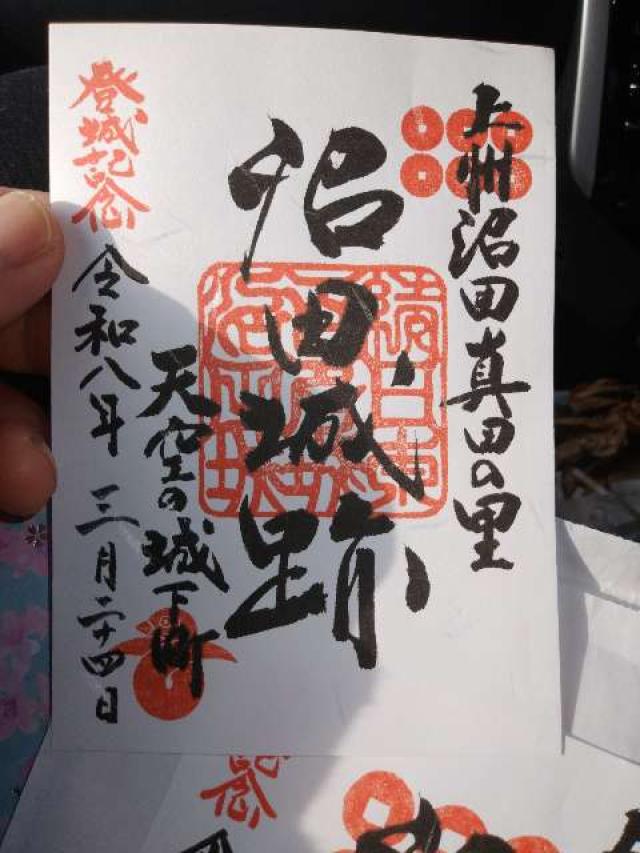 上州沼田真田の里
沼田城跡
天空の城下町
登城記念
令和八年 三月二十四日